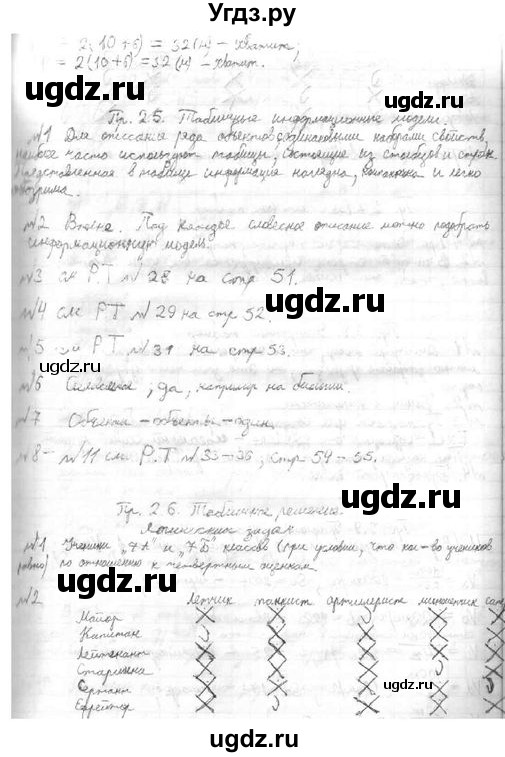 Угдз.ру
= 2(10+6) = 32(м) - хватит;
= 2(10+6) = 32(м) - хватит.
Пр. 25. Табличные информационные модели.
№1 Для описания ряда объектов, одинаковыми наборами свойств,
наиболее часто используют таблицы, состоящие из столбцов и строк
Представленная в таблице информация наглядна, компактна и легко
№2 Вполне. Под каждое словесное описание можно подобрать
информационную модель.
№3 см РТ №28 на стр 51.
№4 см РТ №29 на стр 52.
№5 см РТ №31 на стр 53.
№6 ; да, например на биологии.
№7 Объекты - объекты - один.
№8 - №11 см Р.Т №33-36, стр 54-55.
Пр. 26. Табличные решение
Логических задач
№1 Ученики "7А" и "7Б" классов (при условии, что кол-во учеников
равно) по отношению к четвертным оценкам.
№2 летчик танкист артиллерист минометчик сап
Майор X X J X X
Капитан X J X X X
Лейтенант J X X X X
Старшина X X X X J
Сержант X X X J
Ефрейтор X X J X X
ugdz.ru
ugdz.ru
ugdz.ru
ugdz.ru
ugdz.ru
ugdz.ru
ugdz.ru
ugdz.ru
ugdz.ru
ugdz.ru
ugdz.ru
ugdz.ru